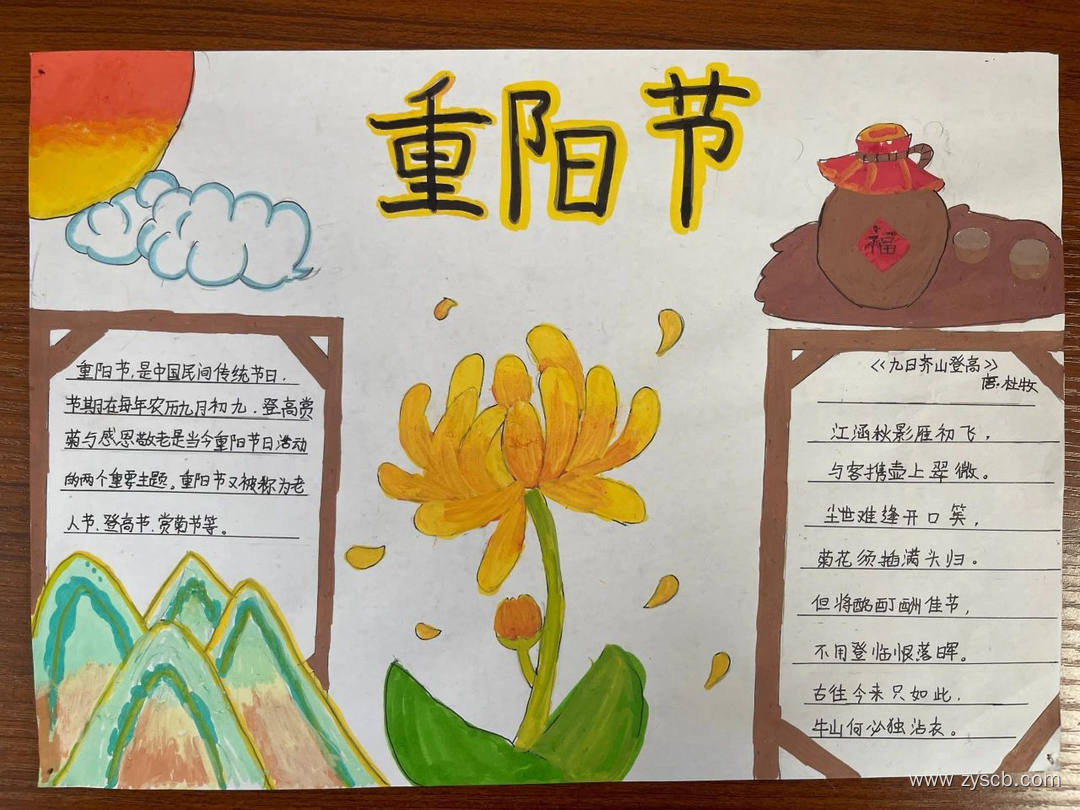 重阳节
福
重阳节,是中国民间传统节日,
节期在每年农历九月初九.登高赏
菊与感恩敬老是当今重阳节日活动
的两个重要主题。重阳节又被称为老
人节、登高节、赏菊节等。
《九日齐山登高》
唐.杜牧
江涵秋影雁初飞,
与客携壶上翠微。
尘世难逢开口笑,
菊花须插满头归。
但将酩酊酬佳节,
不用登临恨落晖。
古往今来只如此.
牛山何必独沾衣。
www.zyscb.com